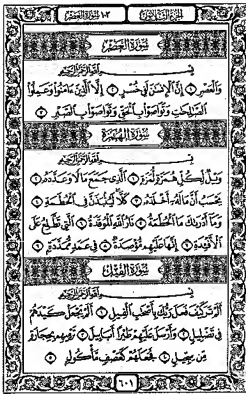 الجزء الثلاثون ١٠٣ سورة العصر
سُورَةُ العَصْرِ
بِسْمِ اللَّهِ الرَّحْمَٰنِ الرَّحِيمِ
وَالْعَصْرِ ۝١ إِنَّ الْإِنسَانَ لَفِي خُسْرٍ ۝٢ إِلَّا الَّذِينَ ءَامَنُوا وَعَمِلُوا
الصَّالِحَاتِ وَتَوَاصَوْا بِالْحَقِّ وَتَوَاصَوْا بِالصَّبْرِ ۝٣
سُورَةُ الهُمَزَةِ
بِسْمِ اللَّهِ الرَّحْمَٰنِ الرَّحِيمِ
وَيْلٌ لِّكُلِّ هُمَزَةٍ لُّمَزَةٍ ۝١ الَّذِي جَمَعَ مَالًا وَعَدَّدَهُ ۝٢
يَحْسَبُ أَنَّ مَالَهُ أَخْلَدَهُ ۝٣ كَلَّا لَيُنبَذَنَّ فِي الْحُطَمَةِ ۝٤
وَمَا أَدْرَاكَ مَا الْحُطَمَةُ ۝٥ نَارُ اللَّهِ الْمُوقَدَةُ ۝٦ الَّتِي تَطَّلِعُ عَلَى
الْأَفْئِدَةِ ۝٧ إِنَّهَا عَلَيْهِم مُّؤْصَدَةٌ ۝٨ فِي عَمَدٍ مُّمَدَّدَةٍ ۝٩
سُورَةُ الفِيلِ
بِسْمِ اللَّهِ الرَّحْمَٰنِ الرَّحِيمِ
أَلَمْ تَرَ كَيْفَ فَعَلَ رَبُّكَ بِأَصْحَابِ الْفِيلِ ۝١ أَلَمْ يَجْعَلْ كَيْدَهُمْ
فِي تَضْلِيلٍ ۝٢ وَأَرْسَلَ عَلَيْهِمْ طَيْرًا أَبَابِيلَ ۝٣ تَرْمِيهِم بِحِجَارَةٍ
مِّن سِجِّيلٍ ۝٤ فَجَعَلَهُمْ كَعَصْفٍ مَّأْكُولٍ ۝٥
٦٠١